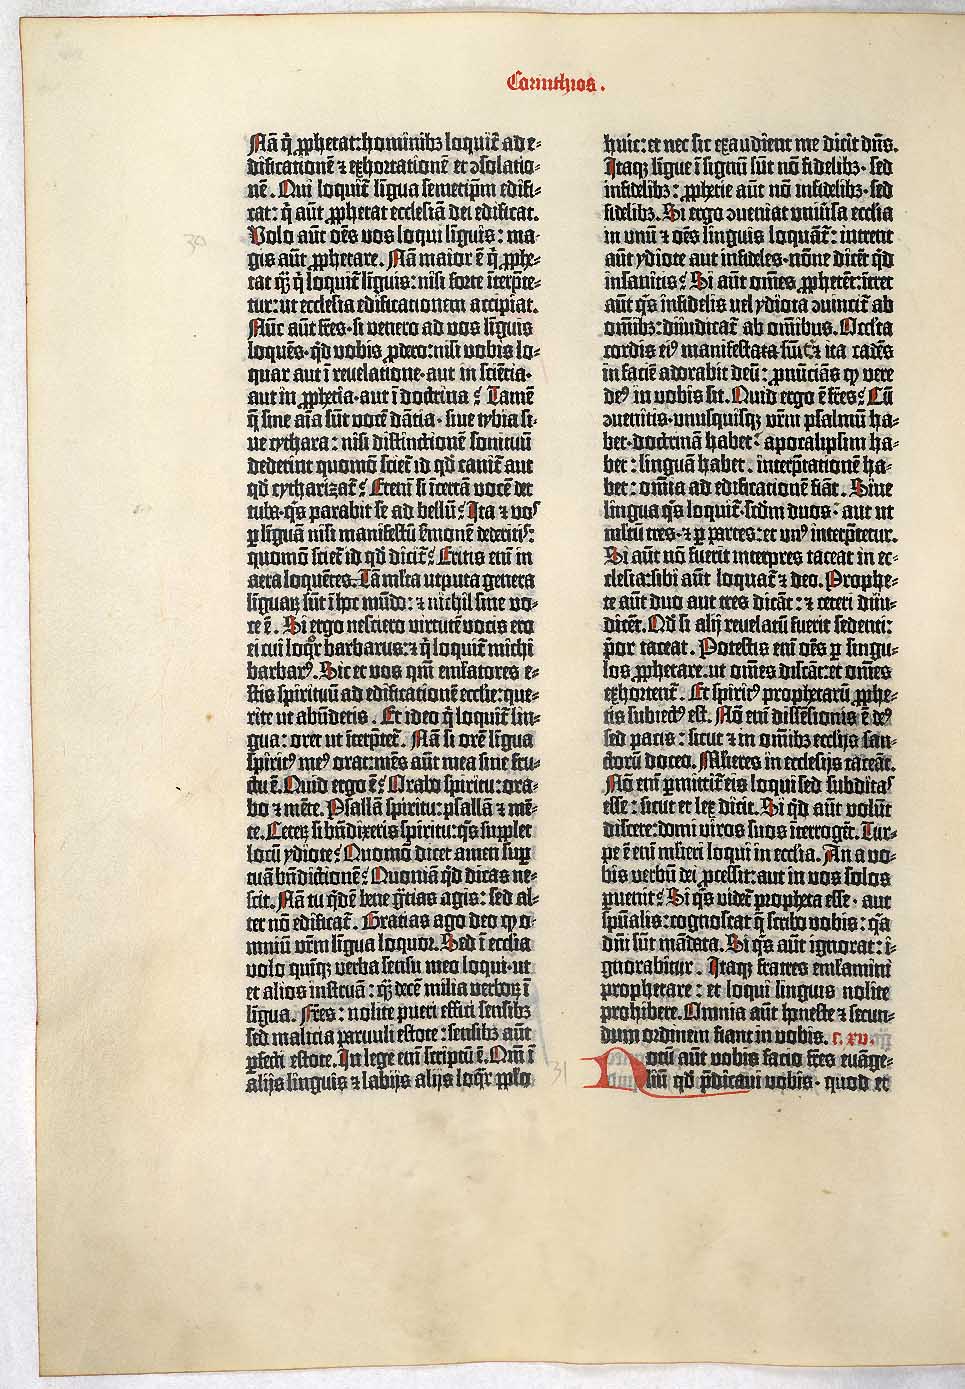 Corinthios.
Nā q̄ ꝓphetat: hominibꝫ loquit᷑ ad e-
dificationē ⁊ exhortationē et ꝯsolatio-
nē. Qui loquit᷑ līgua semetip̄m edifi-
cat: q̄ aūt ꝓphetat ecclesiā dei edificat.
Volo aūt oēs vos loqui līguis: ma-
gis aūt ꝓphetare. Nā maior ē q̄ ꝓphe-
tat q̄ꝫ q̄ loquit᷑ līguis: nisi forte īterp̄te-
tur: ut ecclesia edificationem accipiat.
Nūc aūt fr̄es· si venero ad vos līguis
loquēs· qd̄ vobis ꝓdero: nisi vobis lo-
quar aut ī reuelatione· aut in sciētia·
aut in ꝓphetia· aut ī doctrina? Tamē
q̄ sine aīa sūt vocē dātia· siue tybia si-
ue cythara: nisi distinctionē sonituū
dederint quomō sciet᷑ id qd̄ canit᷑ aut
qd̄ cytharizat᷑? Etenī si īcertā vocē det
tuba· q̄s parabit se ad bellū? Ita ⁊ vos
ꝑ līguā nisi manifestū s̄monē dederitis:
quomō sciet᷑ id qd̄ dicit᷑? Eritis enī in
aera loquētes. Tā ml̄ta utputa genera
līguaꝝ sūt ī hoc mūdo: ⁊ nichil sine vo-
ce ē. Si ergo nesciero virtutē vocis ero
ei cui loqr̄ barbarus: ⁊ q̄ loquit᷑ michi
barbarꝰ. Sic et vos qm̄ eml̄atores e-
stis spirituū ad edificationē ecclīe: que-
rite ut abūdetis. Et ideo q̄ loquit᷑ lin-
gua: oret ut īterp̄tet᷑. Nā si orē līgua
spiritꝰ meꝰ orat: mēs aūt mea sine fru-
ctu ē. Quid ergo ē? Orabo spiritu: ora-
bo ⁊ mēte. Psallā spiritu: psallā ⁊ mē-
te. Ceteꝝ si bn̄dixeris spiritu: q̄s supplet
locū ydiote? Quomō dicet amen suꝑ
tuā bn̄dictionē? Quoniā qd̄ dicas ne-
scit. Nā tu qd̄ē bene gr̄tias agis: sed al-
ter nō edificat᷑. Gratias ago deo ꝙ o-
mniū vr̄m līgua loquor. Sed ī ecclīa
volo quīqꝫ verba sensu meo loqui· ut
et alios instruā: q̄ꝫ decē milia verboꝝ ī
līgua. Fr̄es: nolite pueri effici sensibꝫ
sed malicia paruuli estote: sensibꝫ aūt
ꝑfecti estote. In lege enī scriptū ē. Qm̄ ī
alijs linguis ⁊ labijs alijs loqr̄ pp̄lo
huic: et nec sic exaudient me dicit dn̄s.
Itaqꝫ līgue ī signū sūt nō fidelibꝫ· sed
infidelibꝫ: ꝓphetie aūt nō infidelibꝫ· sed
fidelibꝫ. Si ergo ꝯueniat vniūsa ecclīa
in vnū ⁊ oēs linguis loquāt᷑: intrent
aūt ydiote aut infideles· nōne dicēt qd̄
insanitis? Si aūt om̄es ꝓphetēt: ītret
aūt q̄s infidelis uel ydiota ꝯuincit᷑ ab
om̄ibꝫ: diiudicat᷑ ab om̄ibus. Occl̄ta
cordis eiꝰ manifestata sūt: ⁊ ita cadēs
in faciē adorabit deū: ꝓnūciās ꝙ vere
deꝰ in vobis sit. Quid ergo ē fr̄es? Cū
ꝯuenitis· vnusquisqꝫ vr̄m psalmū ha-
bet· doctrinā habet: apocalipsim ha-
bet: linguā habet· interp̄tationē ha-
bet: om̄ia ad edificationē fiāt. Siue
lingua q̄s loquit᷑· scd̄m duos: aut ut
ml̄tū tres· ⁊ ꝑ partes: et vnꝰ interp̄tetur.
Si aūt nō fuerit interpres taceat in ec-
clesia: sibi aūt loquat᷑ ⁊ deo. Prophe-
te aūt duo aut tres dicāt: ⁊ ceteri diiu-
dicēt. Qd̄ si alij reuelatū fuerit sedenti:
p̄or taceat. Potestis enī oēs ꝑ singu-
los ꝓphetare. ut om̄es discāt: et om̄es
exhortent᷑. Et spiritꝰ prophetarū ꝓphe-
tis subiectꝰ est. Nō enī dissēsionis ē deꝰ
sed pacis: sicut ⁊ in om̄ibꝫ ecclījs san-
ctorū doceo. Ml̄ieres in ecclesijs taceāt.
Nō enī ꝑmittit᷑ eis loqui sed subditas
esse: sicut et lex dicit. Si qd̄ aūt volūt
discere: domi viros suos īterrogēt. Tur-
pe ē enī ml̄ieri loqui in ecclīa. An a vo-
bis verbū dei ꝓcessit: aut in vos solos
ꝑuenit? Si q̄s videt᷑ propheta esse· aut
spūalis: cognoscat q̄ scribo vobis: qa
dn̄i sūt mādata. Si q̄s aūt ignorat: i-
gnorabitur. Itaqꝫ fratres eml̄amini
prophetare: et loqui linguis nolite
prohibere. Omnia aūt honeste ⁊ secun-
dum ordinem fiant in vobis. c. xv.
Notū aūt vobis facio fr̄es euāge-
liū qd̄ p̄dicaui vobis· quod et
30
31